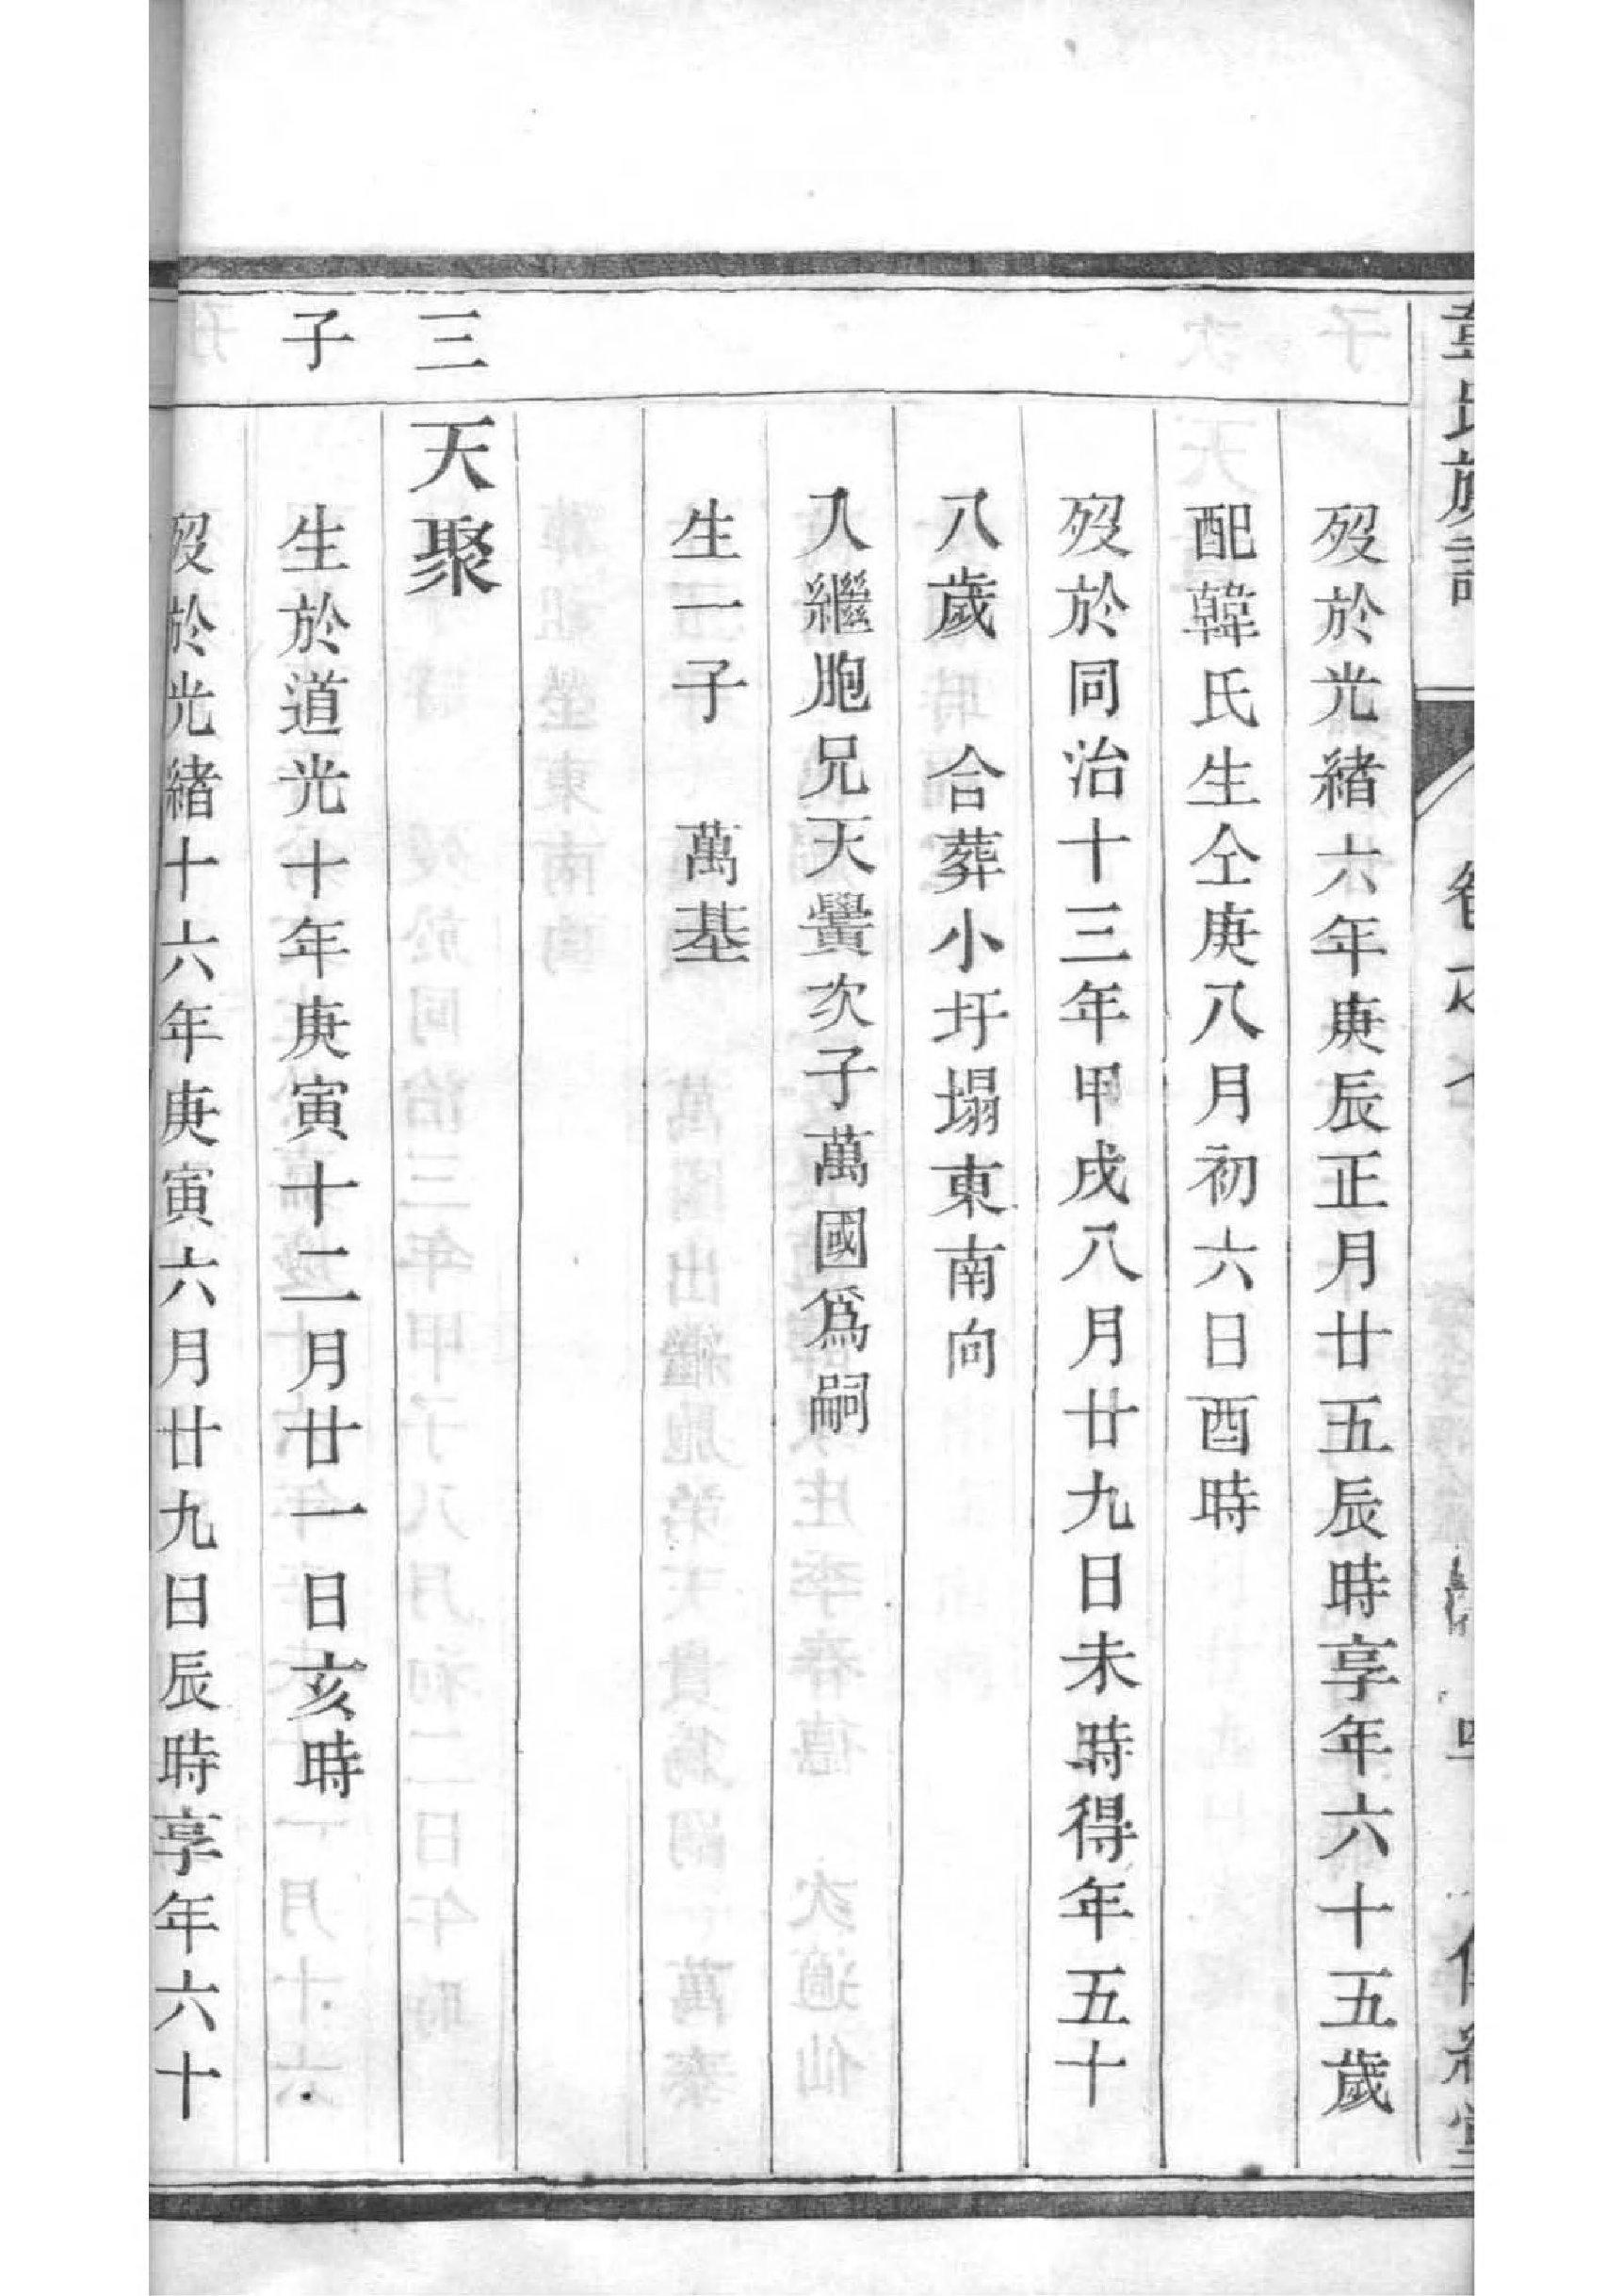 氏族譜
歿於光緒六年庚辰正月廿五辰時享年六十五歲
配韓氏生仝庚八月初六日酉時
歿於同治十三年甲戌八月廿九日未時得年五十
八歲 合葬小圩塌東南向
入繼胞兄天黌次子萬國爲嗣
生一子 萬基
三子
天聚
生於道光十年庚寅十二月廿一日亥時
歿於光緒十六年庚寅六月廿九日辰時享年六十